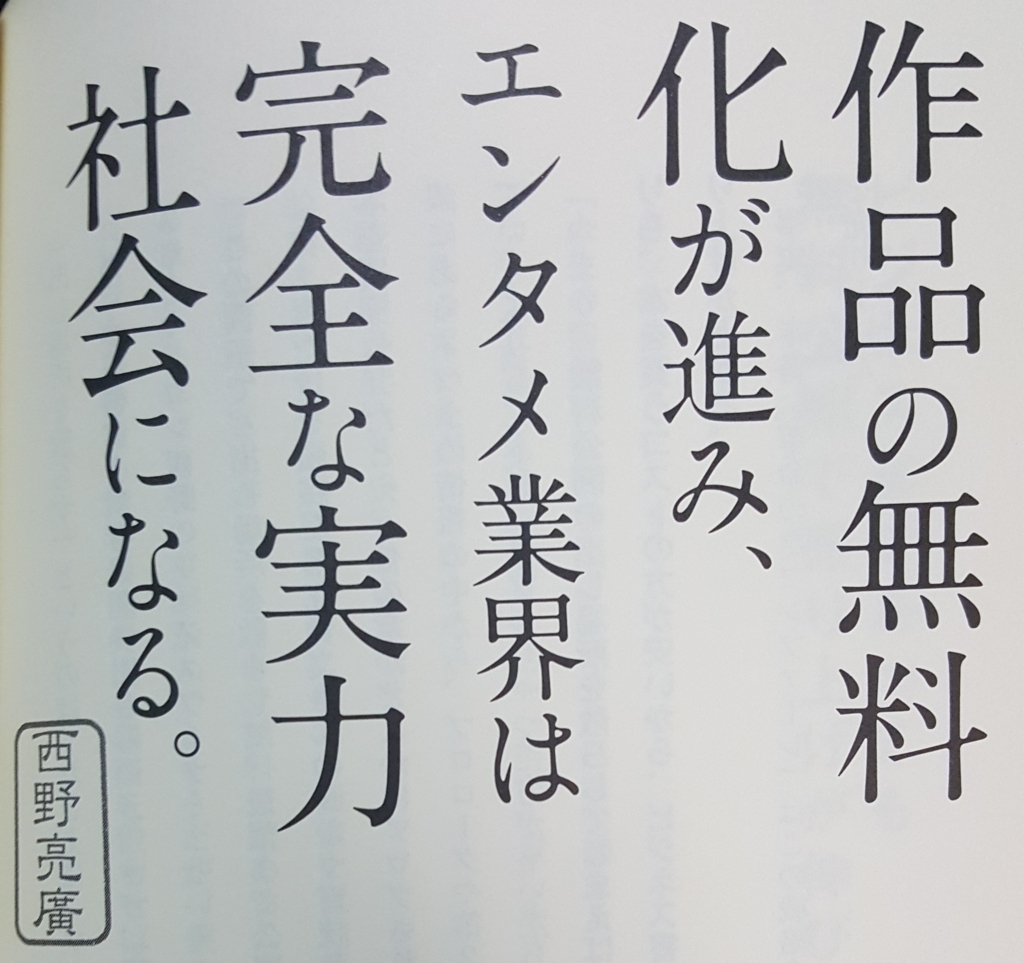 作品の無料
化が進み、
エンタメ業界は
完全な実力
社会になる。
西野亮廣